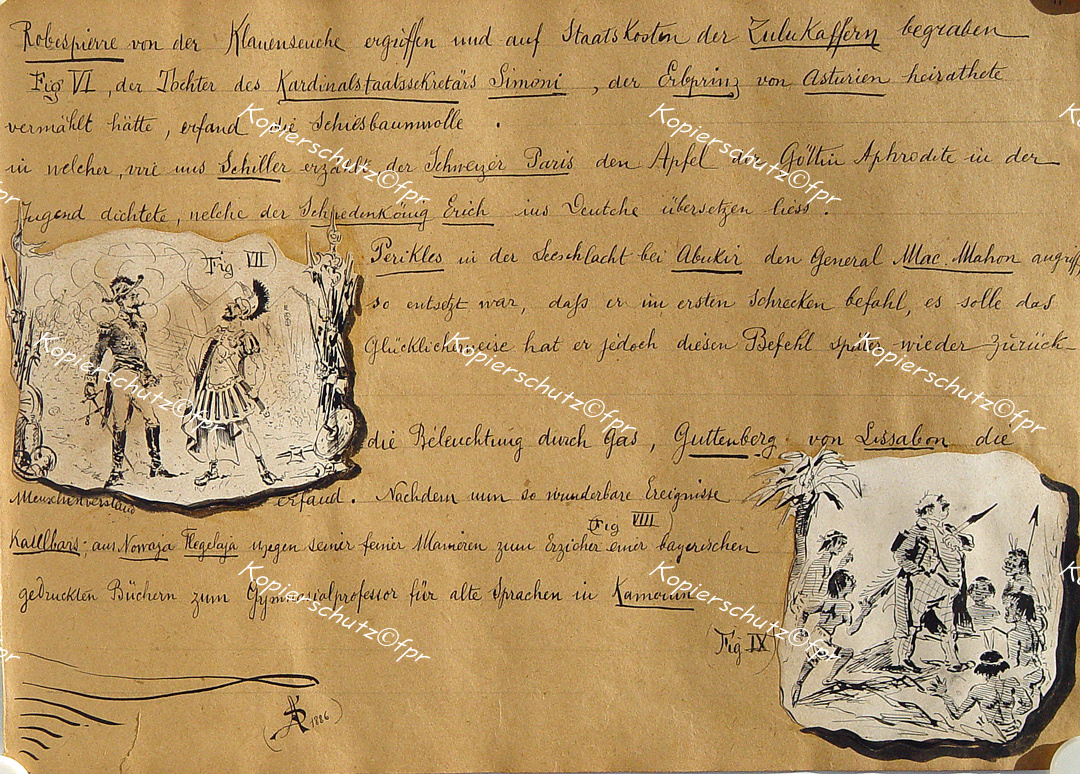 Robespierre von der Klauenseuche ergriffen und auf Staatskosten der Zulukaffern begraben
Fig VI, der Tochter des Kardinalstaatssekretärs Simoni, der Erbprinz von Asturien heirathete
vermählt hätte, erfand die Schiesbaumwolle.
in welcher, wie uns Schiller erzählt der Schweizer Paris den Apfel der Göttin Aphrodite in der
Jugend dichtete, welche der Schwedenkönig Erich ins Deutche übersetzen liess.
Fig VII
Perikles in der Seeschlacht bei Abukir den General Mac. Mahon angriff
so entsetzt war, daß er im ersten Schrecken befahl, es solle das
Glücklicherweise hat er jedoch diesen Befehl später wieder zurück-
die Beleuchtung durch Gas, Guttenberg von Lissabon die
Menschenverstand erfand. Nachdem nun so wunderbare Ereignisse
Fig VIII)
Kaulbars aus Nowaja Flegelaja wegen seiner feiner Manieren zum Erzieher einer bayerischen
gedruckten Büchern zum Gymnasialprofessor für alte Sprachen in Kamerun
(Fig IX)
1886)
Kopierschutz©fpr
Kopierschutz©fpr
Kopierschutz©fpr
Kopierschutz©fpr
Kopierschutz©fpr
Kopierschutz©fpr